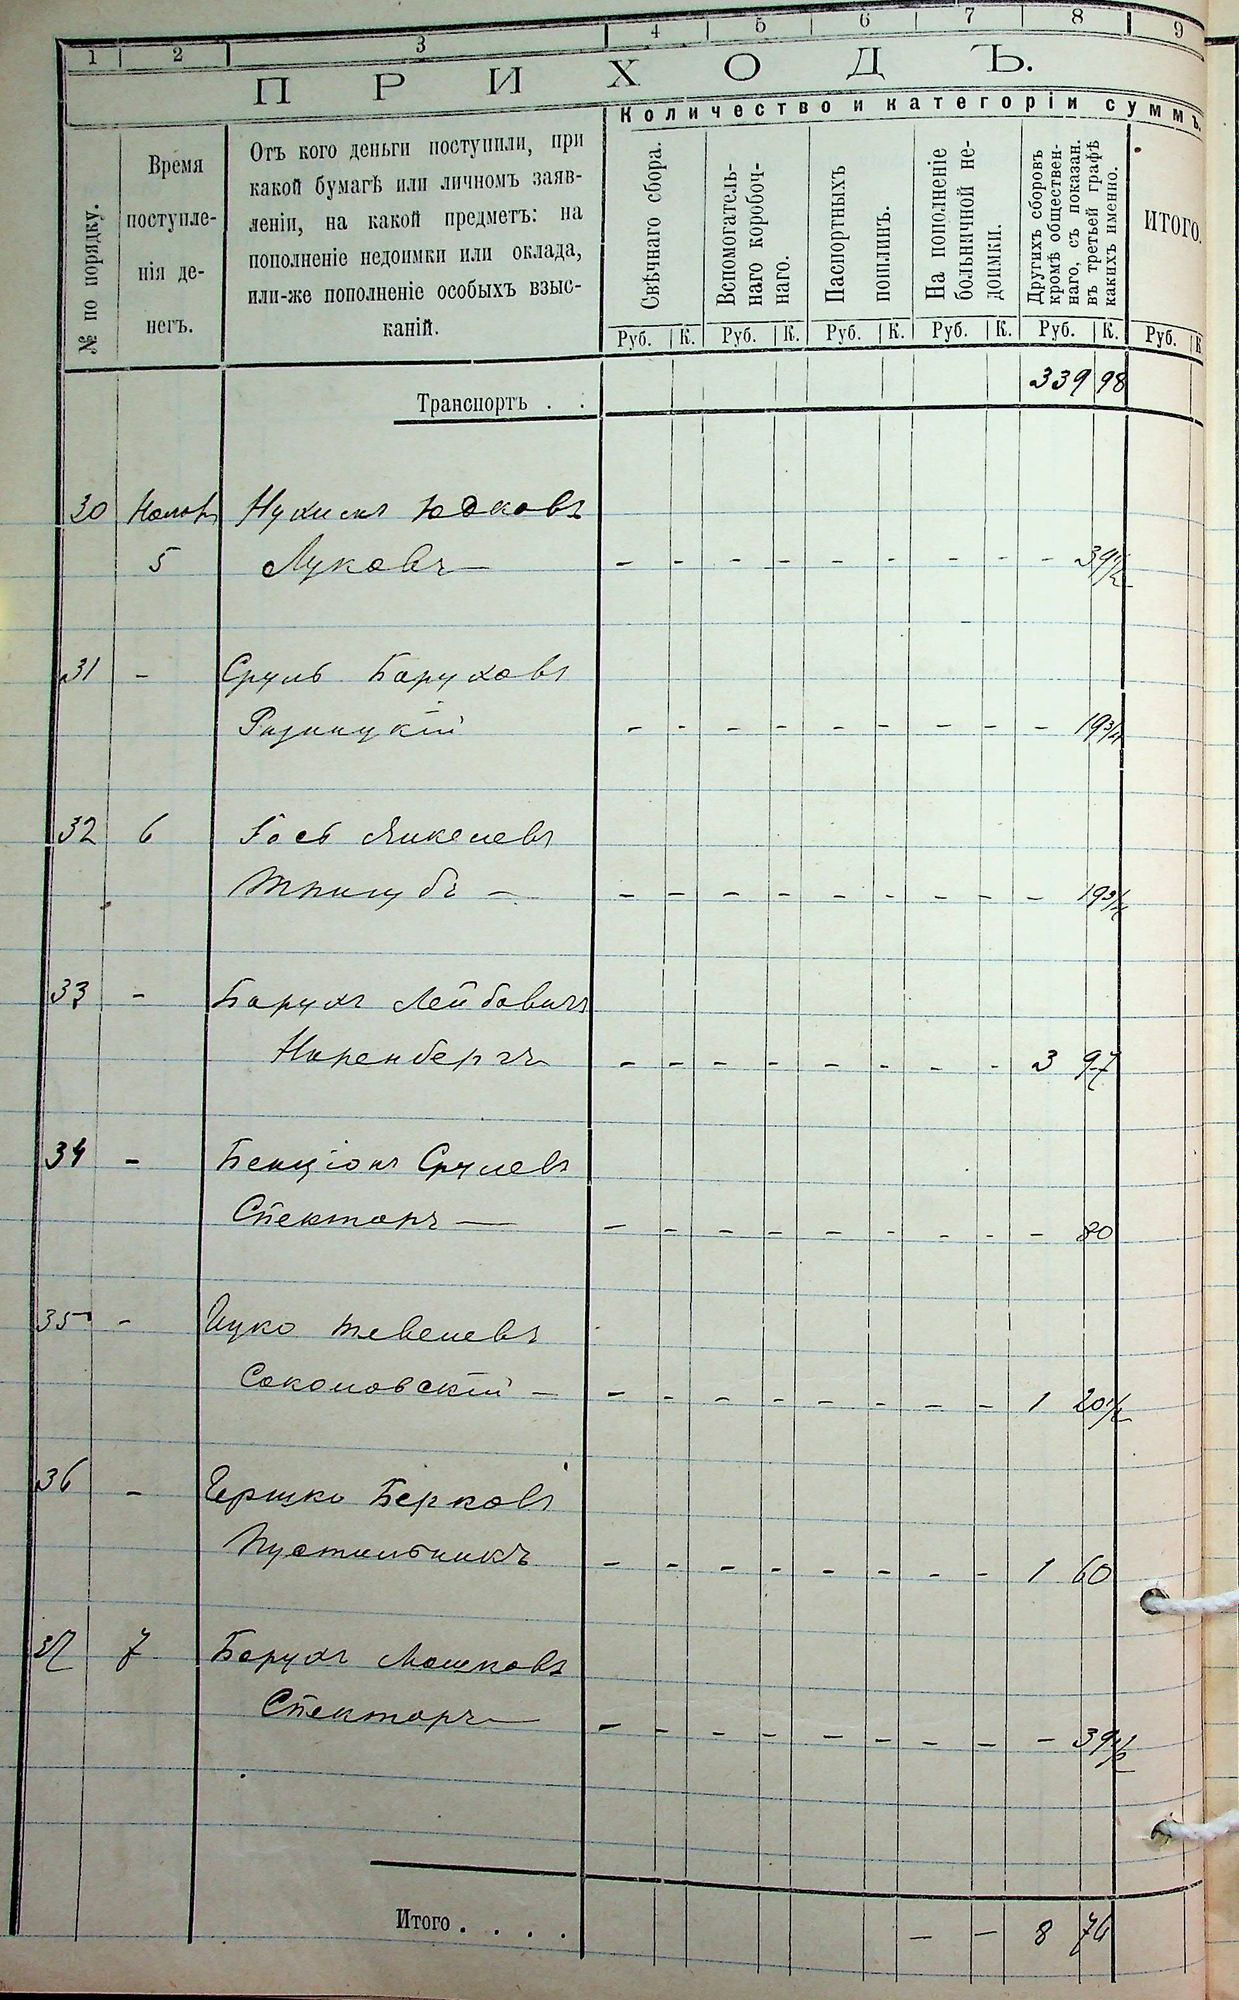 1 2 3 4 5 6 7 8 9
ПРИХОДЪ.
Количество и категоріи суммъ.
№ по порядку.
Время
поступле-
нія де-
негъ.
Отъ кого деньги поступили, при
какой бумагѣ или личномъ заяв-
леніи, на какой предметъ: на
пополненіе недоимки или оклада,
или-же пополненіе особыхъ взыс-
каній.
Свѣчнаго сбора.
Вспомогатель-
наго коробоч-
наго.
Паспортныхъ
пошлинъ.
На пополненіе
больничной не-
доимки.
Другихъ сборовъ
кромѣ обществен-
наго, съ показан.
въ третьей графѣ
какихъ именно.
ИТОГО.
Руб. К. Руб. К. Руб. К. Руб. К. Руб. К. Руб. К
Транспортъ . . 339 98
30 Нухимъ Юдковъ
5 Луковъ — - - - - - - - - - 39 1/2
31 - Сруль Баруховъ
- - - - - - - - - 19 3/4
32 6 Іось Янкелевъ
Тригубъ — - - - - - - - - - 19 3/4
33 - Барухъ Лейбовичъ
Наренбергъ - - - - - - - - 3 97
34 - Бенціонъ Срулевъ
Спекторъ — - - - - - - - - - 80
35 - Ицко Тевелевъ
Соколовскій — - - - - - - - - 1 20 1/2
36 - Гершко Берковъ
Пустильникъ - - - - - - - - 1 60
37 7 Барухъ Мошковъ
Спекторъ — - - - - - - - - - 39 1/2
Итого . . . . - - 8 76